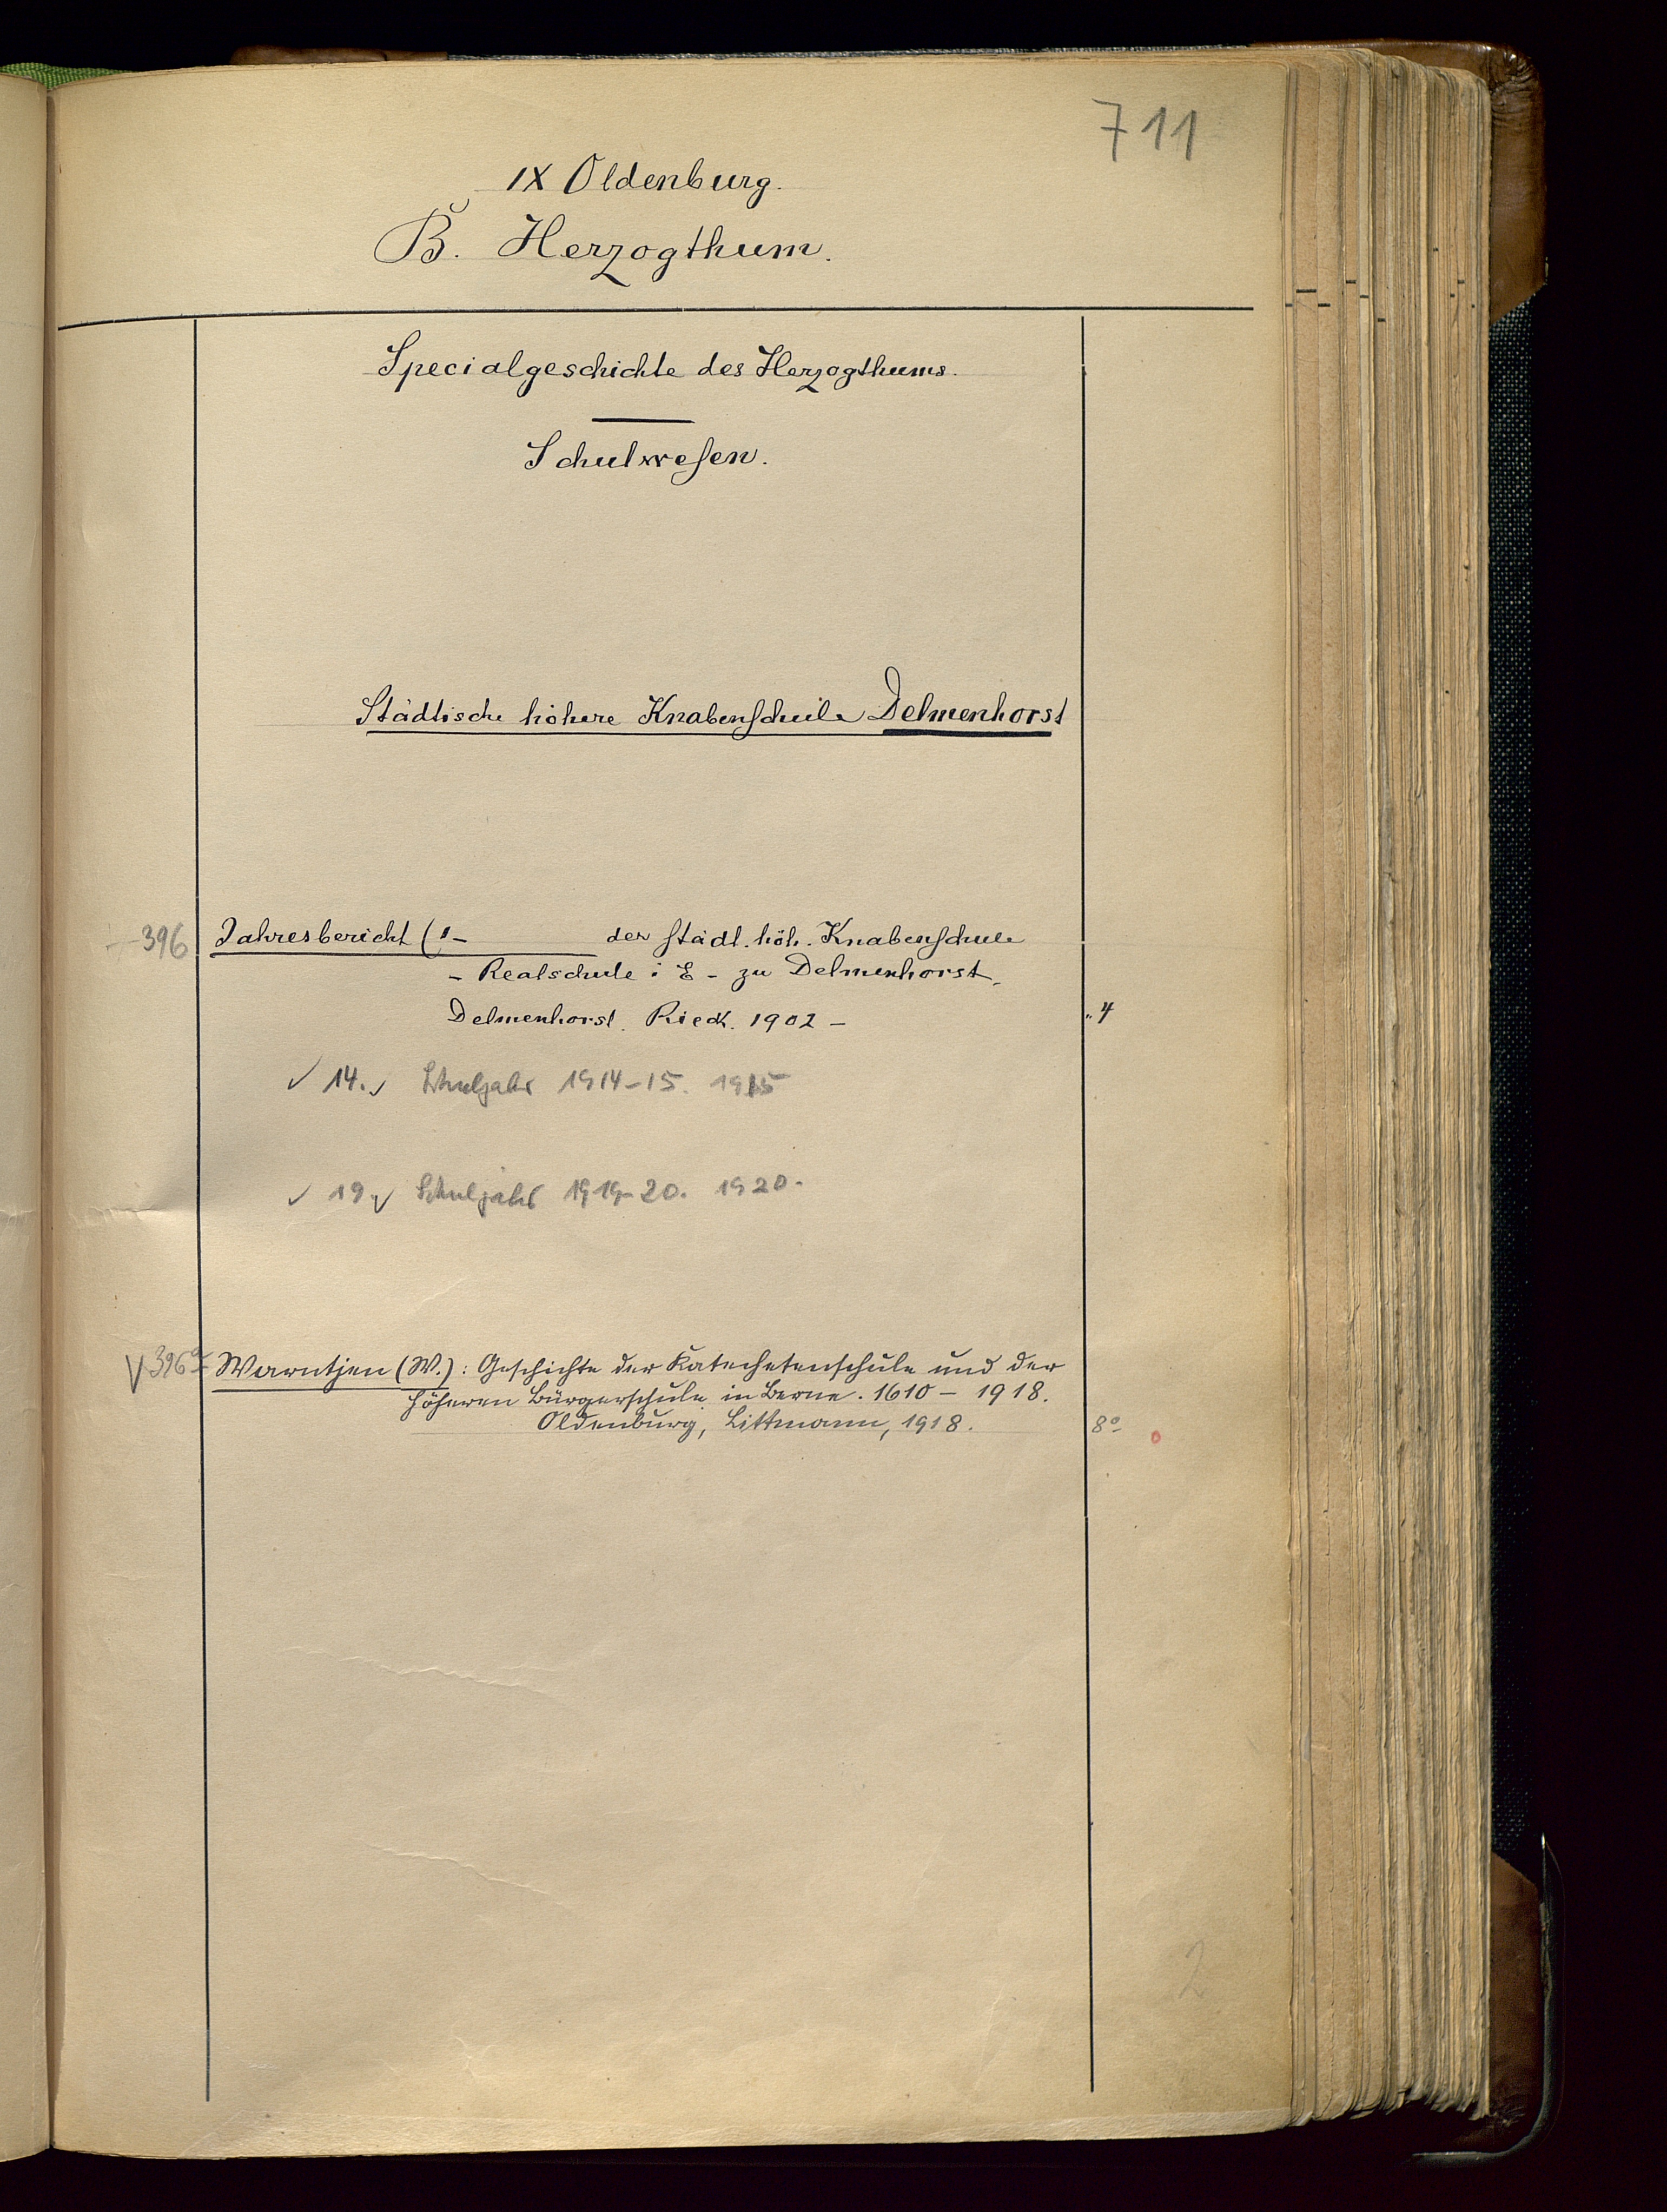 711
IX Oldenburg.
B. Herzogthum.
Specialgeschichte des Herzogthums.
Schulwesen.
Städtische höhere Knabenschule Delmenhorst
396 Jahresbericht (1- der städt. höh. Knabenschule
- Realschule i E - zu Delmenhorst.
Delmenhorst. Rieck. 1902 - 4
✓ 14. ✓ Schuljahr 1914-15. 1915
✓ 19. ✓ Schuljahr 1919-20. 1920.
V 396a Warntjen (W.): Geschichte der Katechetenschule und der
höheren Bürgerschule in Berne. 1610 - 1918.
Oldenburg, Littmann, 1918. 8o
2